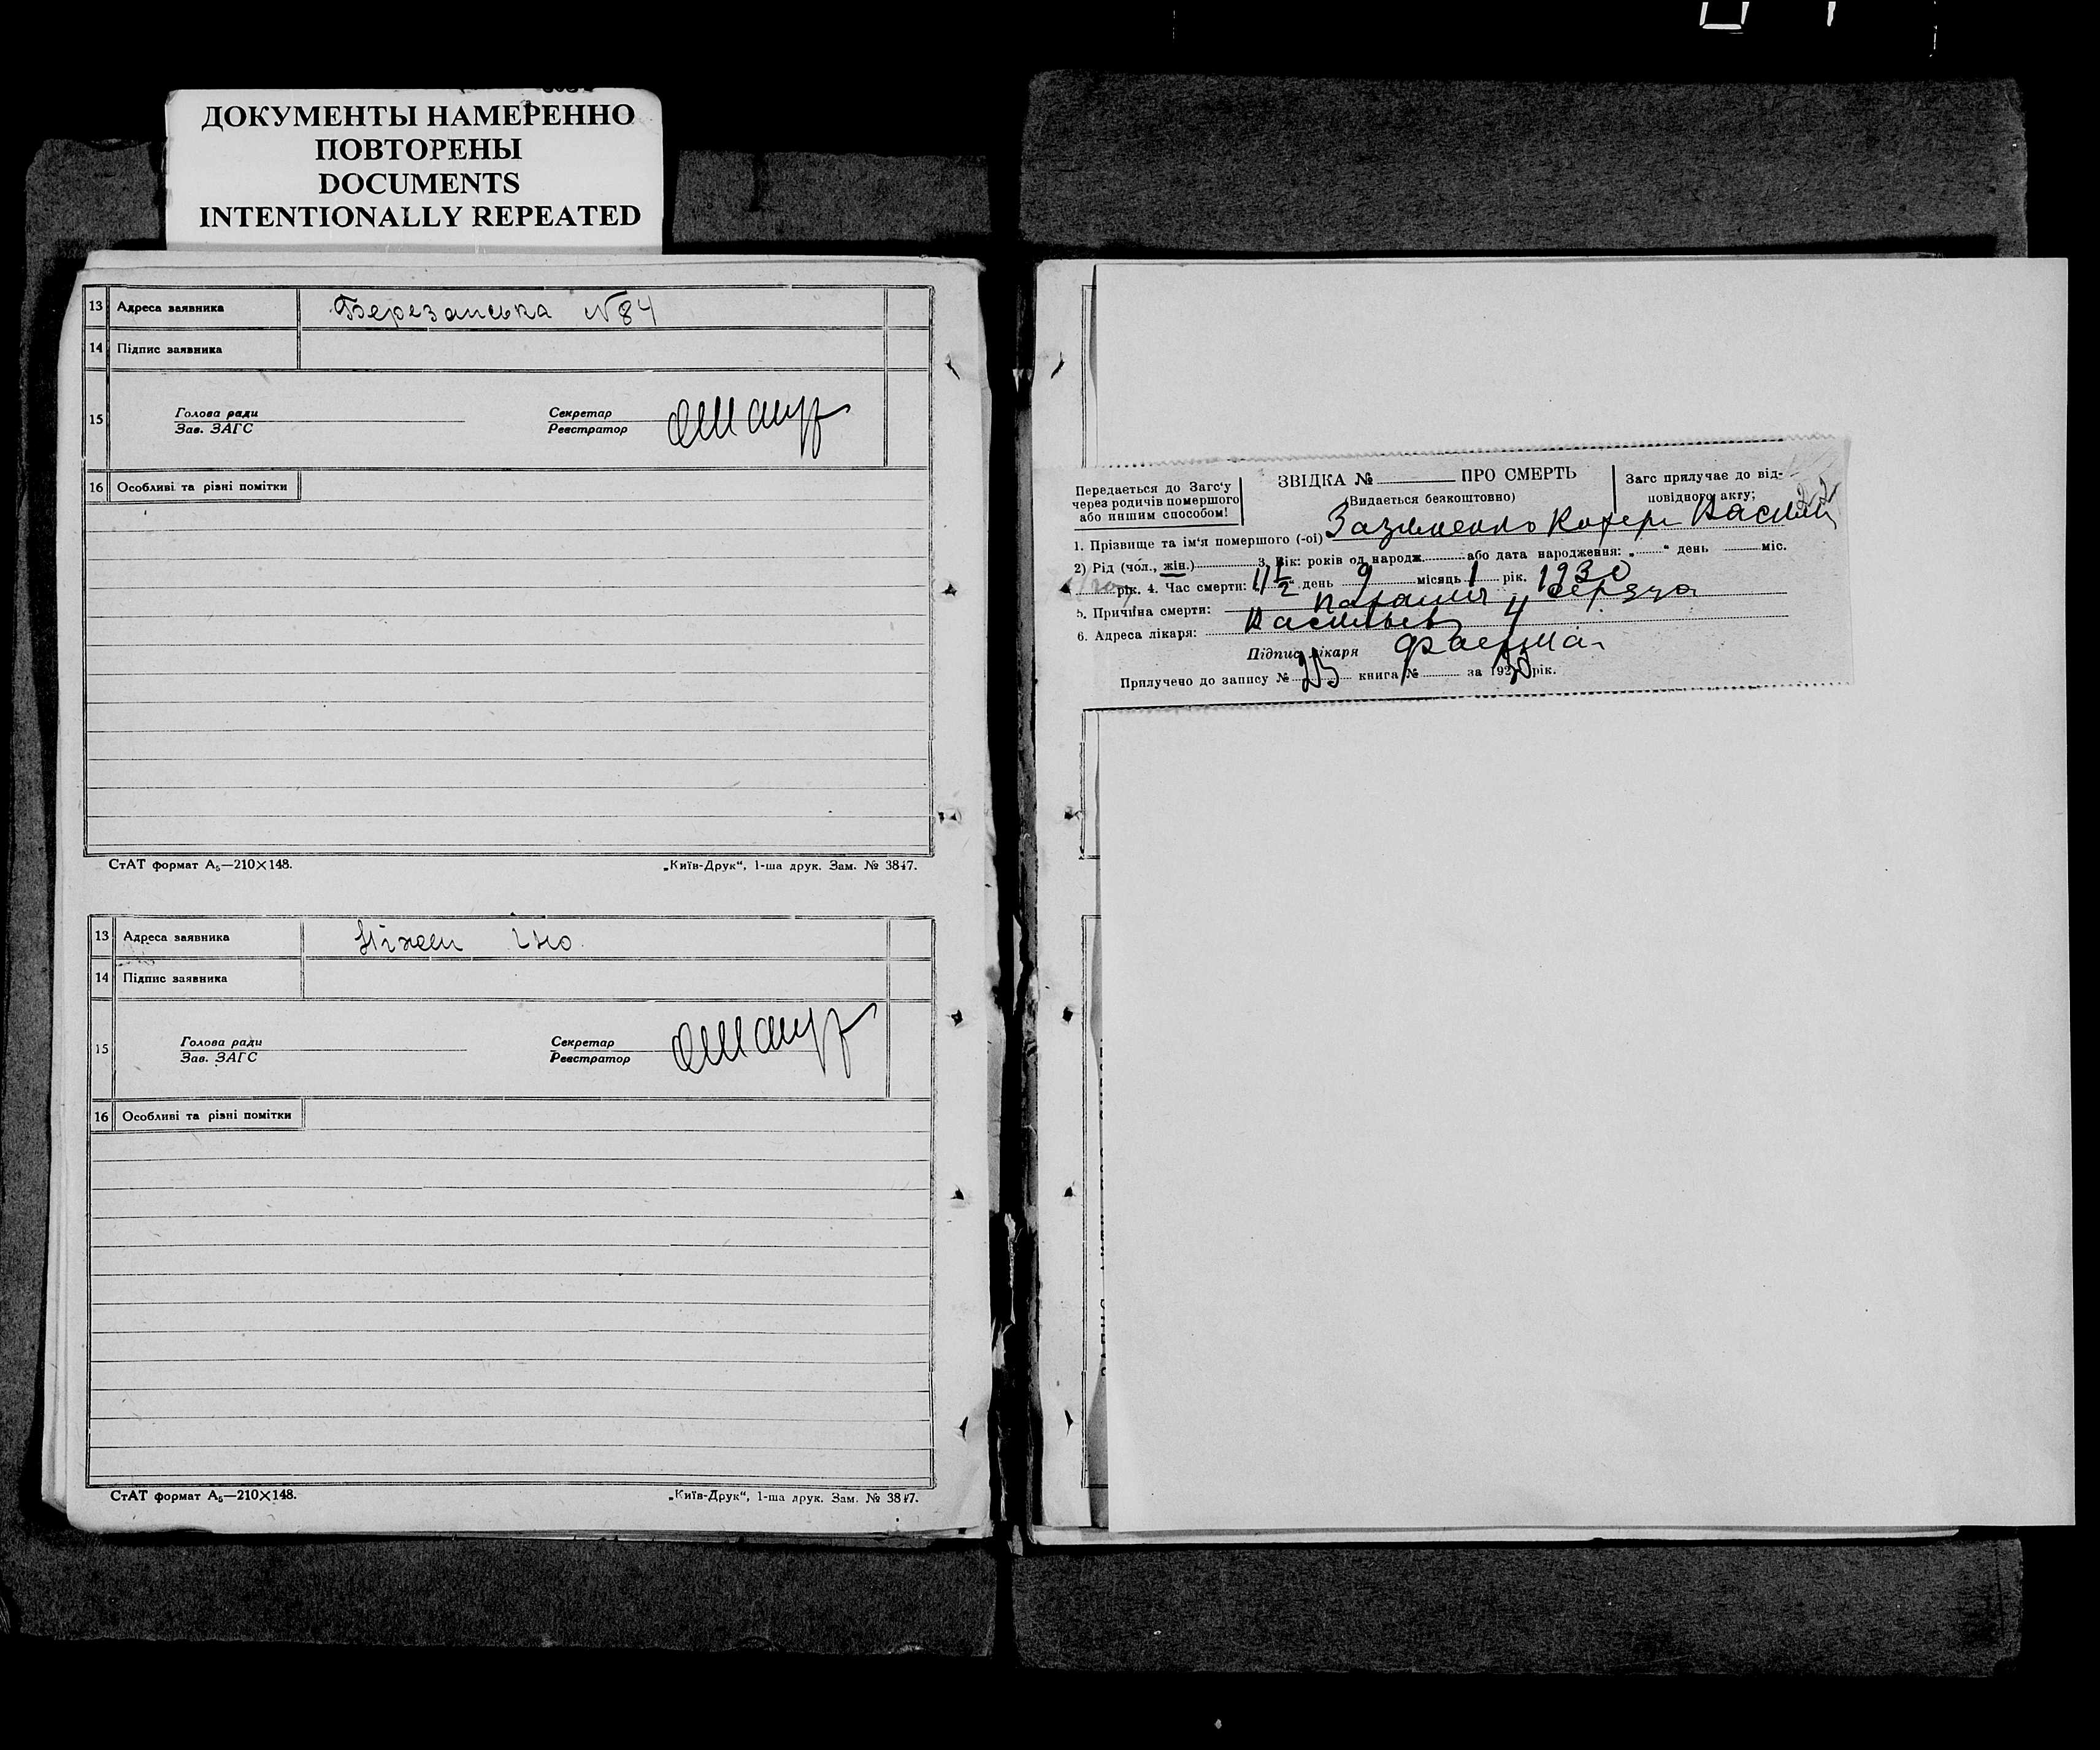 ДОКУМЕНТЫ НАМЕРЕННО
ПОВТОРЕНЫ
DOCUMENTS
INTENTIONALLY REPEATED
13 Адреса заявника Березанська №84
14 Підпис заявника
15 Голова ради
Зав. ЗАГС
Секретар
Реєстратор
16 Особливі та різні помітки
СтАТ формат А₅—210×148.
„Київ-Друк“, 1-ша друк. Зам. № 3847.
13 Адреса заявника Ніжен ІНО.
14 Підпис заявника
15 Голова ради
Зав. ЗАГС
Секретар
Реєстратор
16 Особливі та різні помітки
СтАТ формат А₅—210×148.
„Київ-Друк“, 1-ша друк. Зам. № 3847.
Передається до Загс‘у
через родичів помершого
або иншим способом!
ЗВІДКА № ПРО СМЕРТЬ
(Видається безкоштовно)
Загс прилучає до від-
повідного акту;
1. Прізвище та ім‘я помершого (-ої)
2) Рід (чол., жін.) 3. Вік: років од народж. або дата народження: „ “ день міс.
рік. 4. Час смерти: 11 1/2 день 9 місяць 1 рік. 1930
5. Причина смерти: серця
6. Адреса лікаря: 4
Підпис лікаря
Прилучено до запису № 25 книга № за 1930 рік.